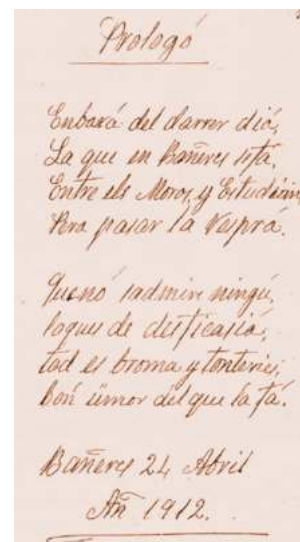 Prologo
Enbará del darrer diá,
La que en Bañeres s'fá,
Entre els Moros, y Estudiáns,
Pera pasar la Vesprá.
Quenó sadmire ningú,
loques de
tad es broma y tonteries,
bon úmor del que la fá.
Bañeres 24 Abril
Añ 1912.